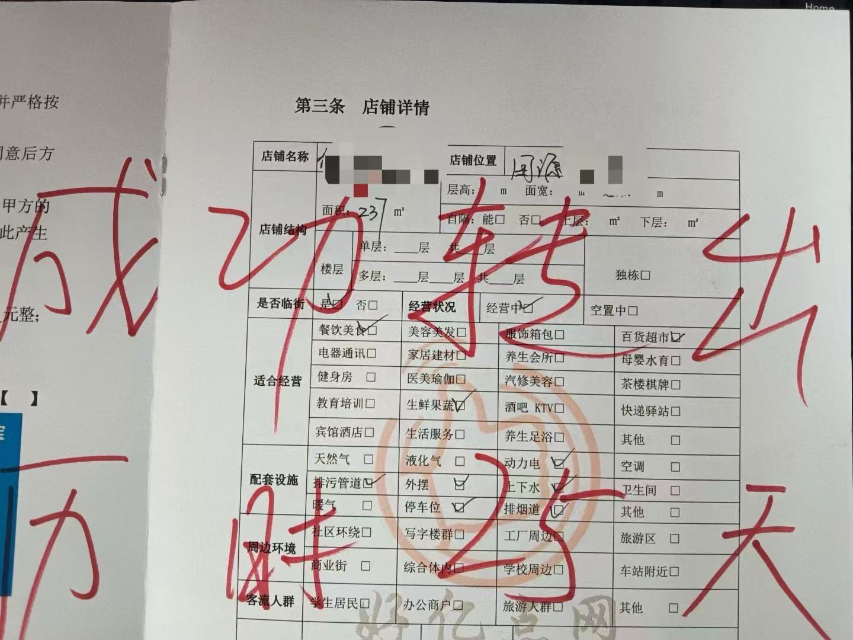 Home
并严格按
同意后方
甲方的
此产生
元整;
【 】
万
第三条 店铺详情
店铺名称 店铺位置
层高: m 面宽: m m
店铺结构 面积: 237 m² 能□ 否□ 上层: m² 下层: m²
楼层 单层: ___层 共___层 独栋□
多层: ___层___层 共___层
是否临街 是☑ 否□ 经营状况 经营中☑ 空置中□
适合经营 餐饮美食☑ 美容美发□ 服饰箱包□ 百货超市☑
电器通讯□ 家居建材□ 养生会所□ 母婴水育□
健身房 □ 医美瑜伽□ 汽修美容□ 茶楼棋牌□
教育培训□ 生鲜果蔬☑ 酒吧 KTV□ 快递驿站□
宾馆酒店□ 生活服务□ 养生足浴□ 其他 □
配套设施 天然气 □ 液化气 □ 动力电 ☑ 空调 □
排污管道☑ 外摆 ☑ 上下水 ☑ 卫生间 □
暖气 □ 停车位 ☑ 排烟道 ☑ 其他 □
周边环境 社区环绕□ 写字楼群□ 工厂周边□ 旅游区 □
商业街 □ 综合体内□ 学校周边□ 车站附近□
客流人群 学生居民□ 办公商户□ 旅游人群□ 其他 □
成功转出
用时25天
好亿点网